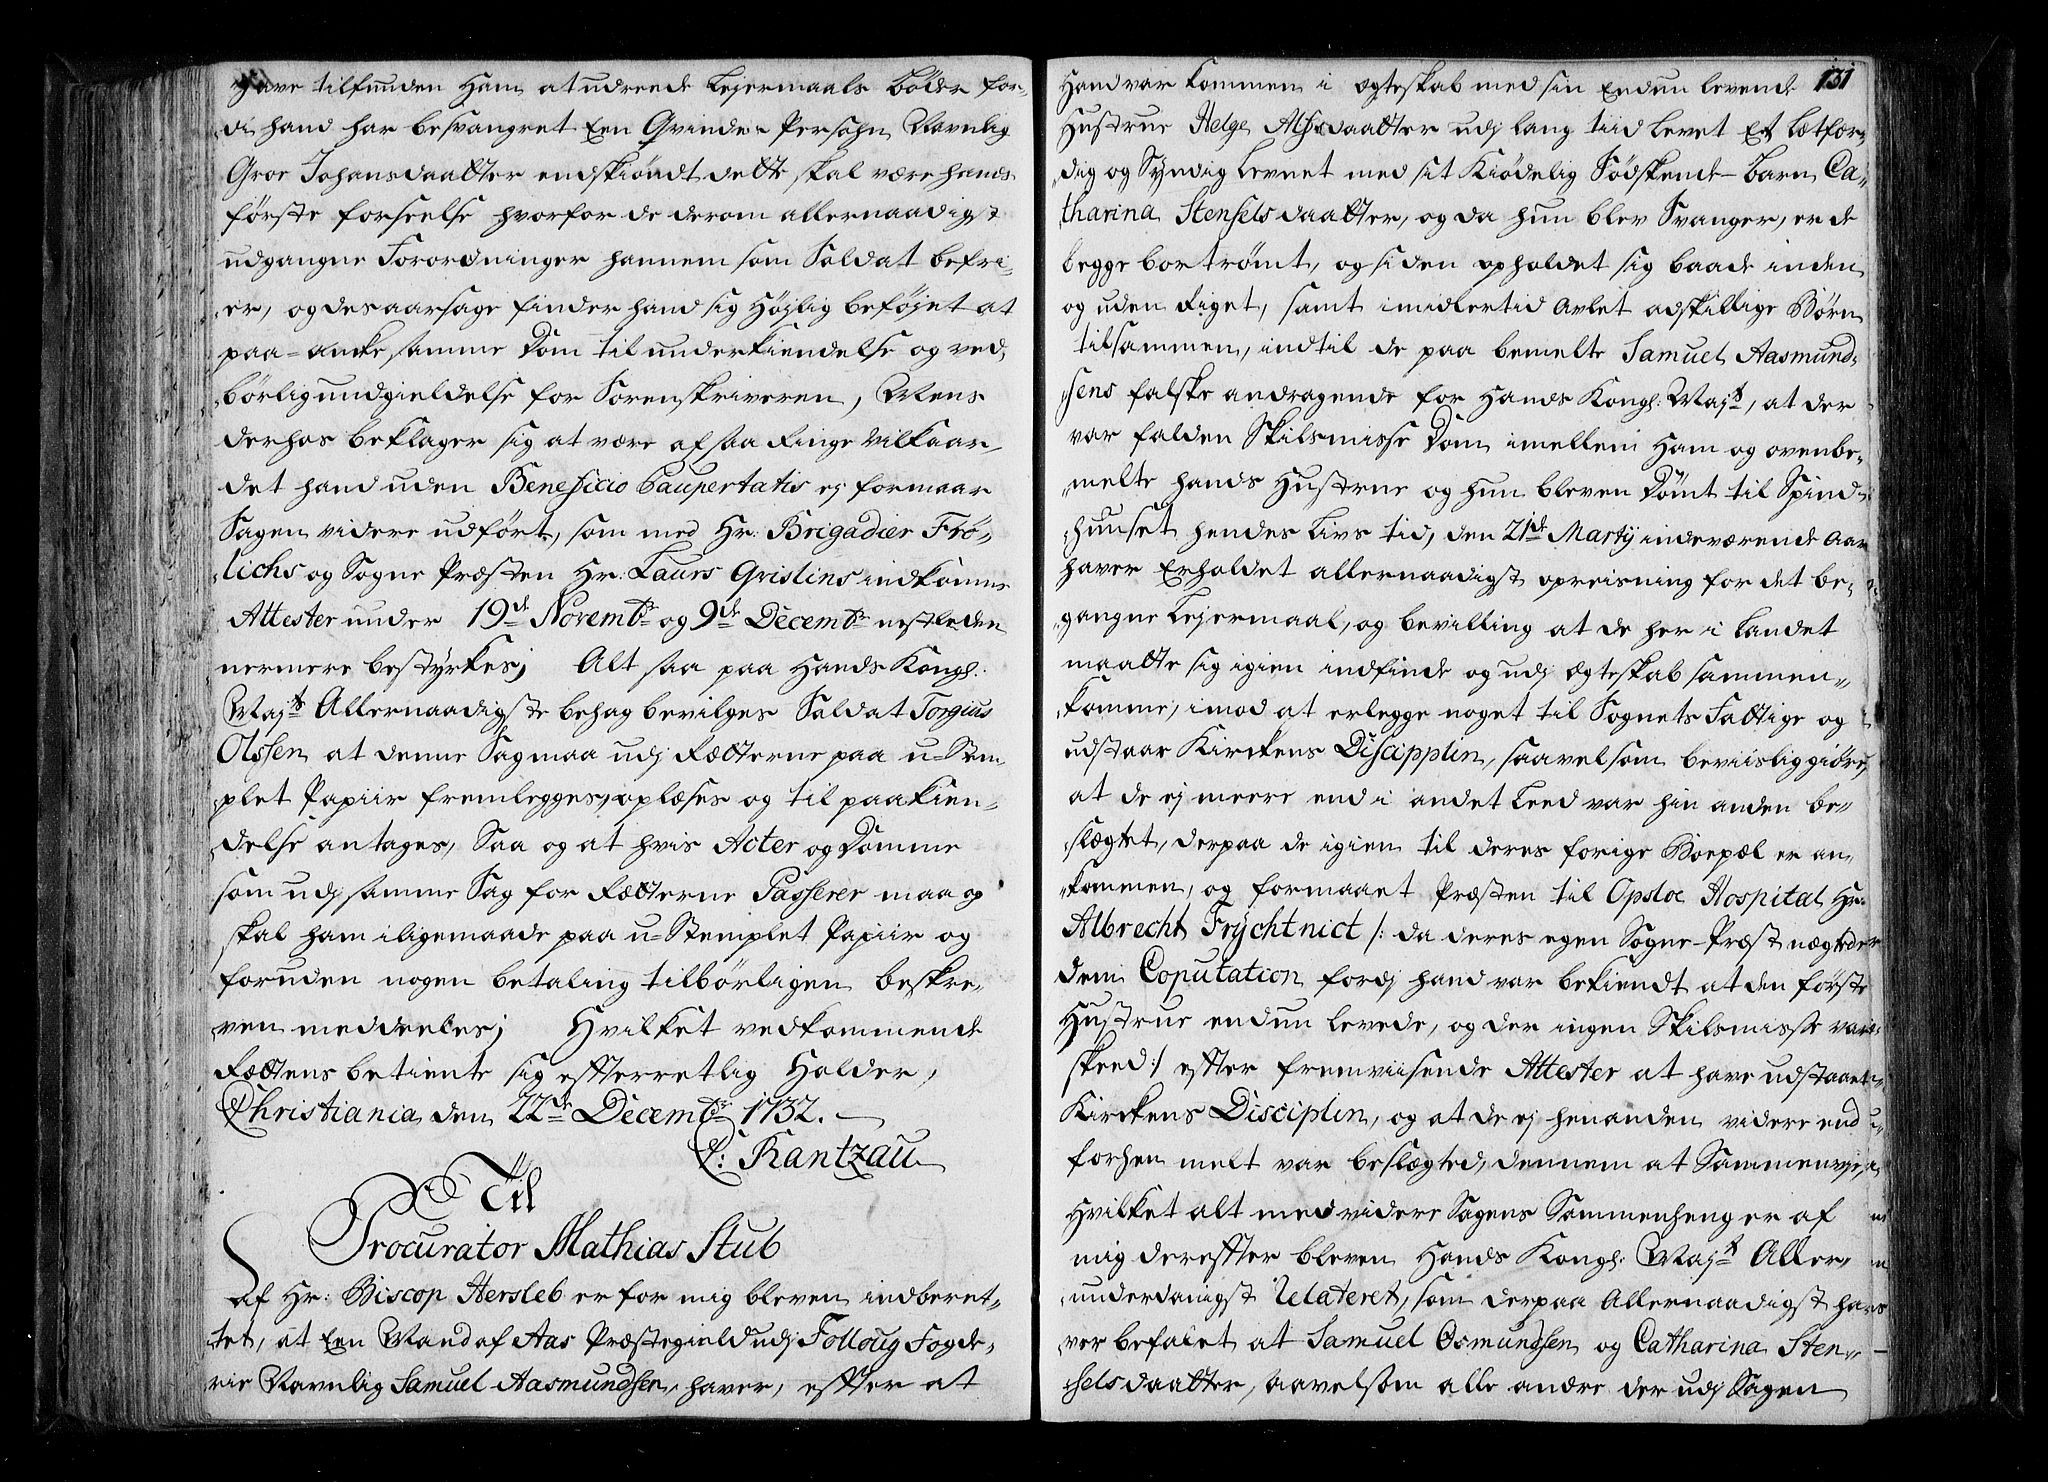 have tilfunden Ham at udreede Lejermaals Böder for-
di hand har besvangret Een Qvinde-Persohn Navnlig
Groe Johansdaatter endskiöndt dette skal være hands
förste forseelse hvorfor de derom allernaadigst
udgangne Forordninger hannem som Soldat befri-
er, og des aarsage finder hand sig Höjlig beföjet at
paa-ancke samme Dom til underkiendelse og ved-
börlig undgieldelse for Sorenskriveren, Mens
derhos beklager sig at være af saa Ringe Vilkaar
det hand uden Beneficio Paupertatis ej formaar
Sagen videre udfört, som med Hr: Brigadier Frö-
lichs og Sogne Præsten Hr: Laurs Qvislins indkomne
Attester under 19de Novembr og 9de Decembr nestleden
nermere bestyrkes; Alt saa paa Hands Kongl:
Majts Allernaadigste behag bevilges Soldat Torgius
Olssen at denne Sag maa udj Rætterne paa u-Stem-
plet Papiir fremlegges, oplæses og til paakien-
delse antages, Saa og at hvis Acter og Domme
som udj samme Sag for Rætterne Passerer maa og
skal ham iligemaade paa u-Stemplet Papiir og
foruden nogen betaling tilbörligen beskre-
ven meddeeles; Hvilket vedkommende
Rættens betiente sig efterretlig Holder,
Christiania den 22de Decembr 1732.
C: Rantzau
Til
Procurator Mathias Stub
Af Hr: Biscop Hersleb er for mig bleven indberet-
tet, at Een Mand af Aas Præstegield udj Folloug Fogde-
rie Navnlig Samuel Aasmundsen haver, efter at
131
Hand var kommen i Ægteskab med sin Endnu levende
Hustrue Helge Alfsdaatter udj lang tiid levet Et letfær-
dig og Syndig Levnet med sit Kiödelig Södskende-Barn Ca-
tharina Stenselsdaatter, og da hun blev Svanger, er de
begge bortrömt, og siden opholdet sig baade inden
og uden Riget, samt imidlertid Avlet adskillige Börn
tilsammen, indtil de paa bemelte Samuel Aasmund-
sens falske andragende for Hands Kongl: Majt, at der
var falden Skilsmisse Dom imellem Ham og ovenbe-
melte hands Hustrue og hun bleven Dömt til Spind-
huuset hendes Livs tid, den 21de Martij indeværende Aar
haver Erholdet allernaadigst opreisning for det be-
gangne Lejermaal, og bevilling at de her i Landet
maatte sig igien indfinde og udj Ægteskab sammen-
komme, imod at erlegge noget til Sognets Fattige og
udstaar Kirckens Discipplin, saavelsom beviisliggiöre,
at de ej meere end i andet Leed var hin anden be-
slægtet, derpaa de igien til deres forige Boepæl er an-
kommen, og formaaet Præsten til Opsloe Hospital Hr:
Albrecht Frÿchtnict /: da deres egen Sogne-Præst nægtede
dem Copulation fordj hand var bekiendt at den förste
Hustrue endnu levede, og der ingen Skilsmisse var
skeed :/ efter fremviisende Attester at have udstaaet
Kirckens Disciplin, og at de ej henanden videre end
forhen melt var beslægted, dennem at Sammenvie,
Hvilket alt med videre Sagens Sammenheng er af
mig derefter bleven Hands Kongl: Majt Aller-
underdanigst Relateret, som derpaa Allernaadigst ha-
ver befalet at Samuel Osmundsen og Catharina Sten-
selsdaatter, saavelsom alle andre der udj Sagen